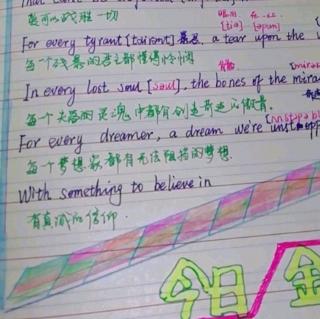 真可以战胜一切
For every tyrant [tairənt] 暴君, a tear upon the
每个残暴的君主都懂得怜悯
In every lost soul [səul], the bones of the mira
每个失落的灵魂中都有创造奇迹的傲骨.
For every dreamer, a dream we're unstopp
每个梦想家都有无法阻挡的梦想.
With something to believe in
有真诚的信仰.
今日 金